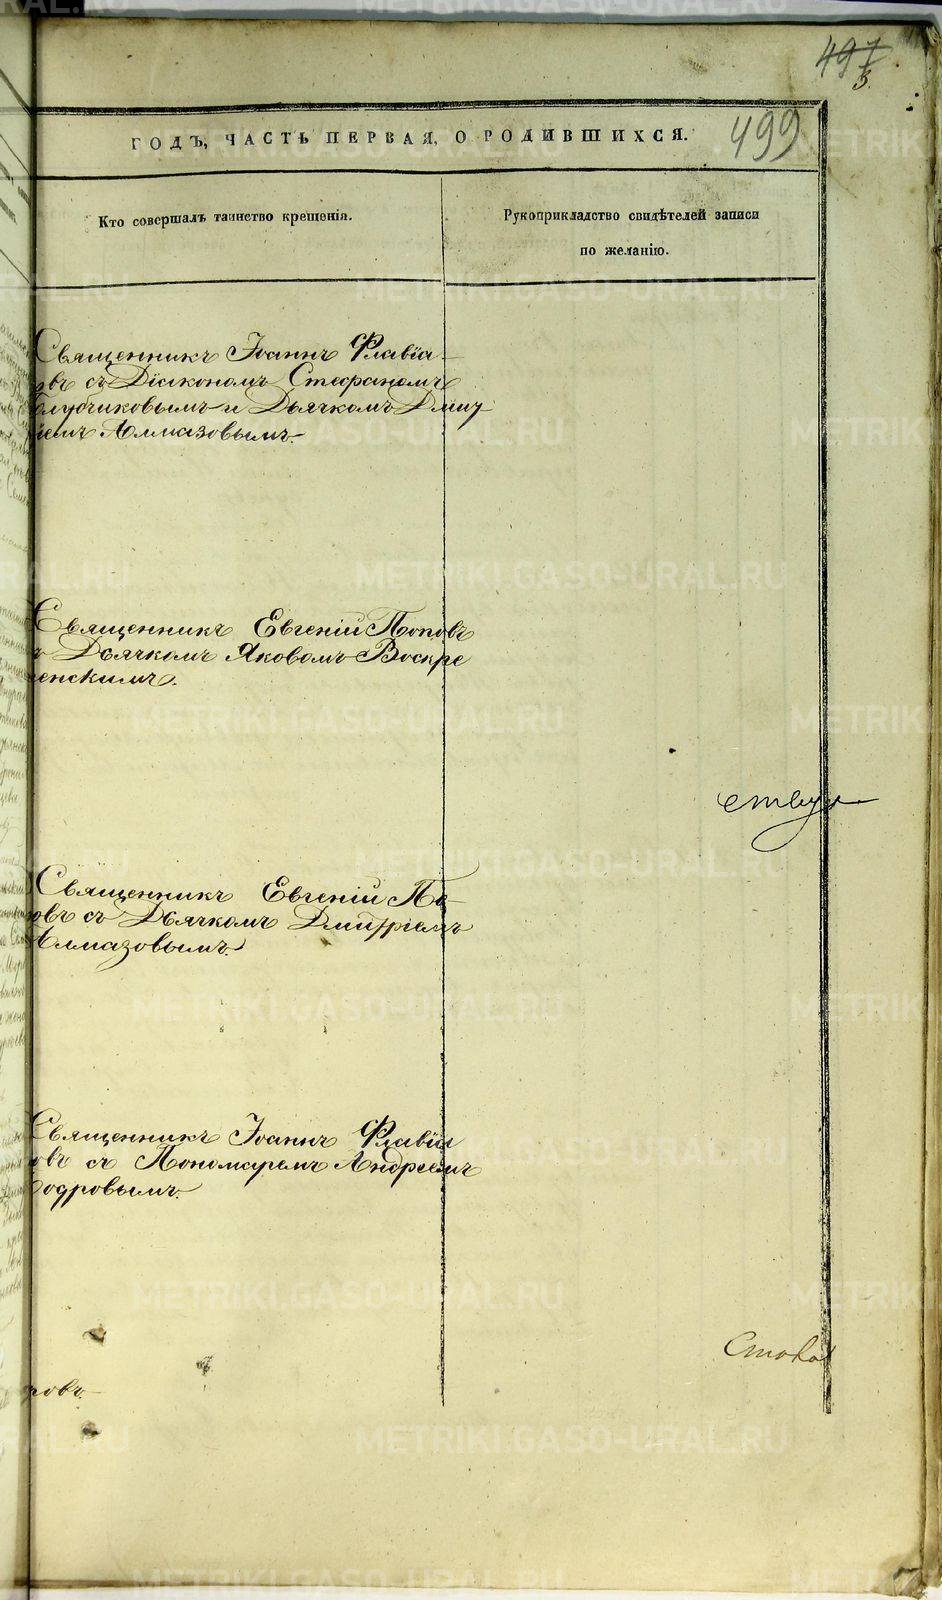 497
3.
ГОДЪ, ЧАСТЬ ПЕРВАЯ, О РОДИВШИХСЯ.
499
Кто совершалъ таинство крещенія.
Рукоприкладство свидѣтелей записи
по желанію.
Священникъ Іоаннъ Флавіа-
овъ съ Діакономъ Стефаномъ
олубчиковымъ и Дьячкомъ Дмит
ріемъ Алмазовымъ.
Священникъ Евгеній Поповъ
ъ Дьячкомъ Яковомъ Воскре
енскимъ.
Священникъ Евгеній По-
овъ съ Дьячкомъ Дмитріемъ
Алмазовымъ.
Священникъ Іоаннъ Флавіа
овъ съ Пономаремъ Андреемъ
одровымъ.
ровъ
METRIKI.GASO-URAL.RU